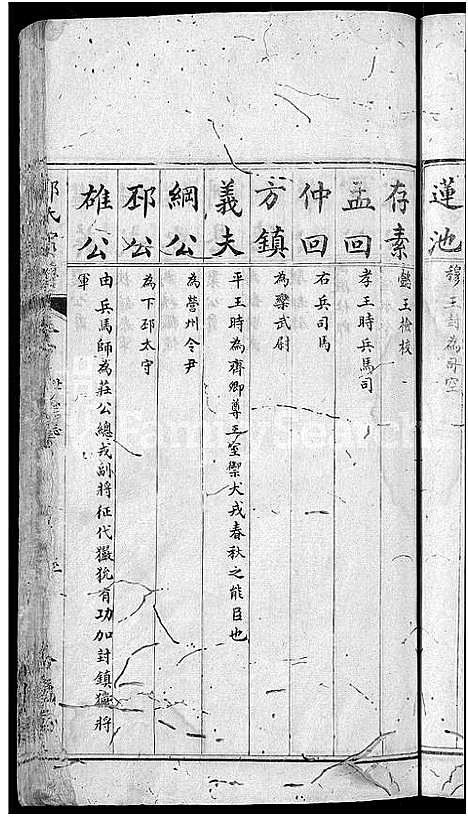 蓮池 穆王封為司空
存素 懿王檢校
孟回 孝王時兵馬司
仲回 右兵司馬
方鎮 為欒武尉
義夫 平王時為齊卿尊王室禦犬戎春秋之能臣也
綱公 為營州令尹
邳公 為下邳太守
雄公 由兵馬師為莊公總戎副將征代玁狁有功加封鎮獱將
軍